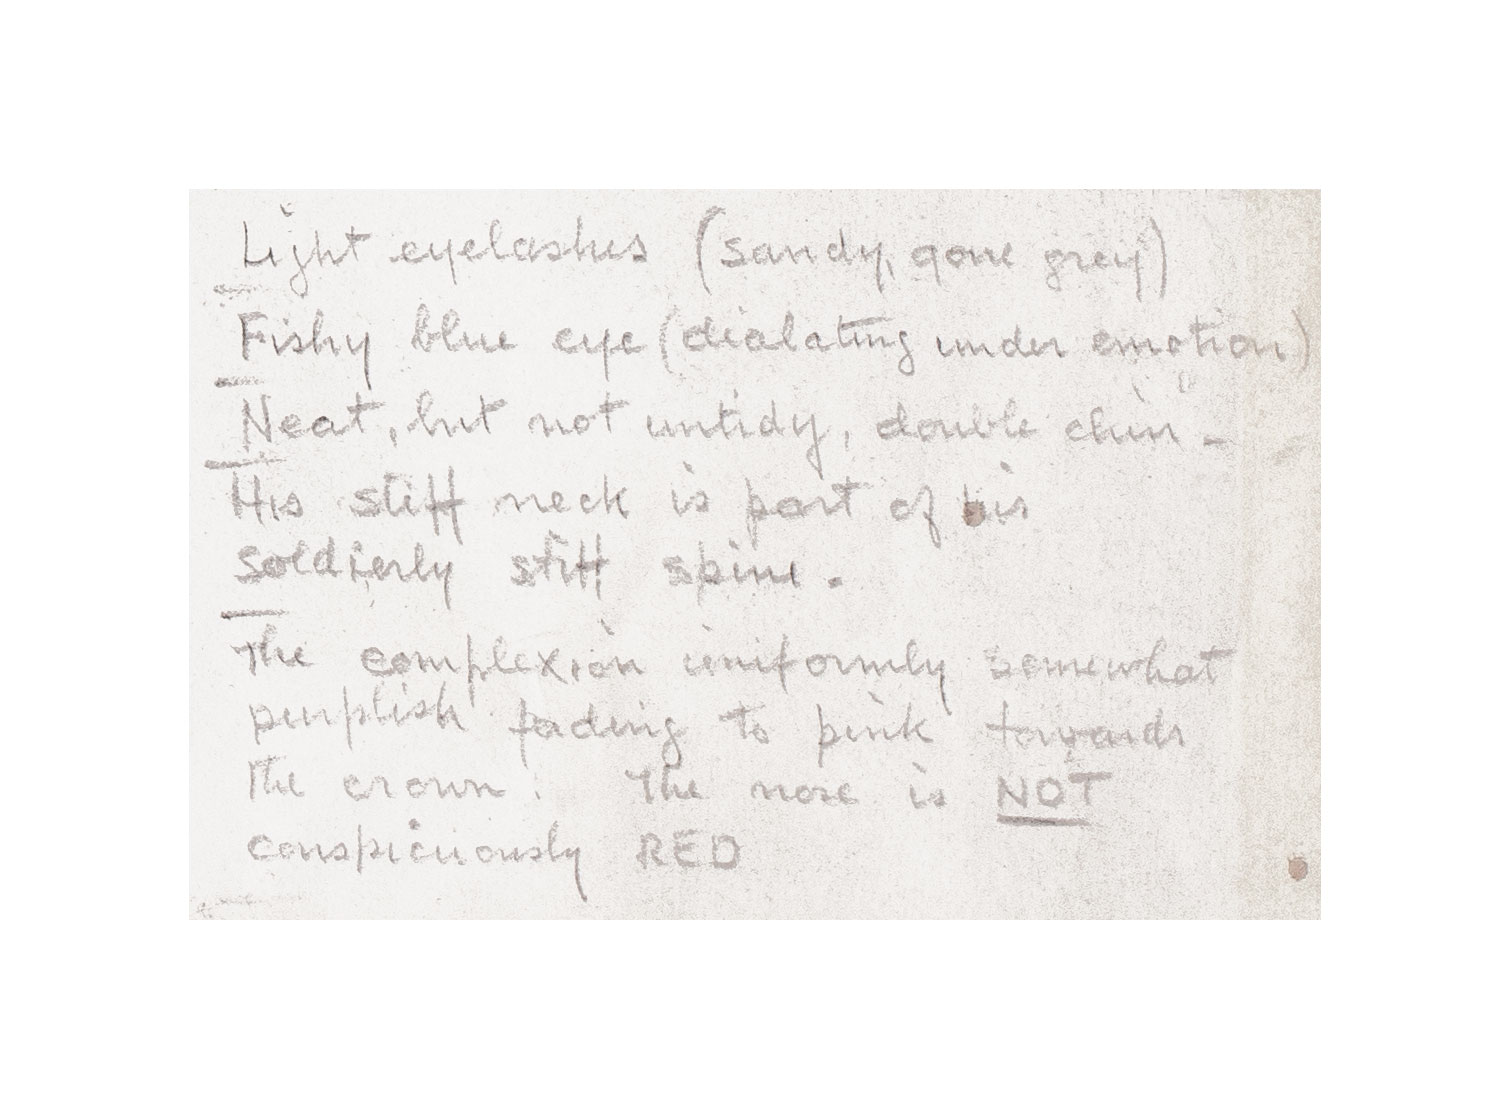 Light eyelashes (sandy, gone grey)
Fishy blue eye (dialating under emotion)
Neat, but not untidy, double chin -
His stiff neck is part of his
soldierly stiff spine.
The complexion uniformly somewhat
purplish fading to pink towards
the crown. The nose is NOT
conspiciously RED